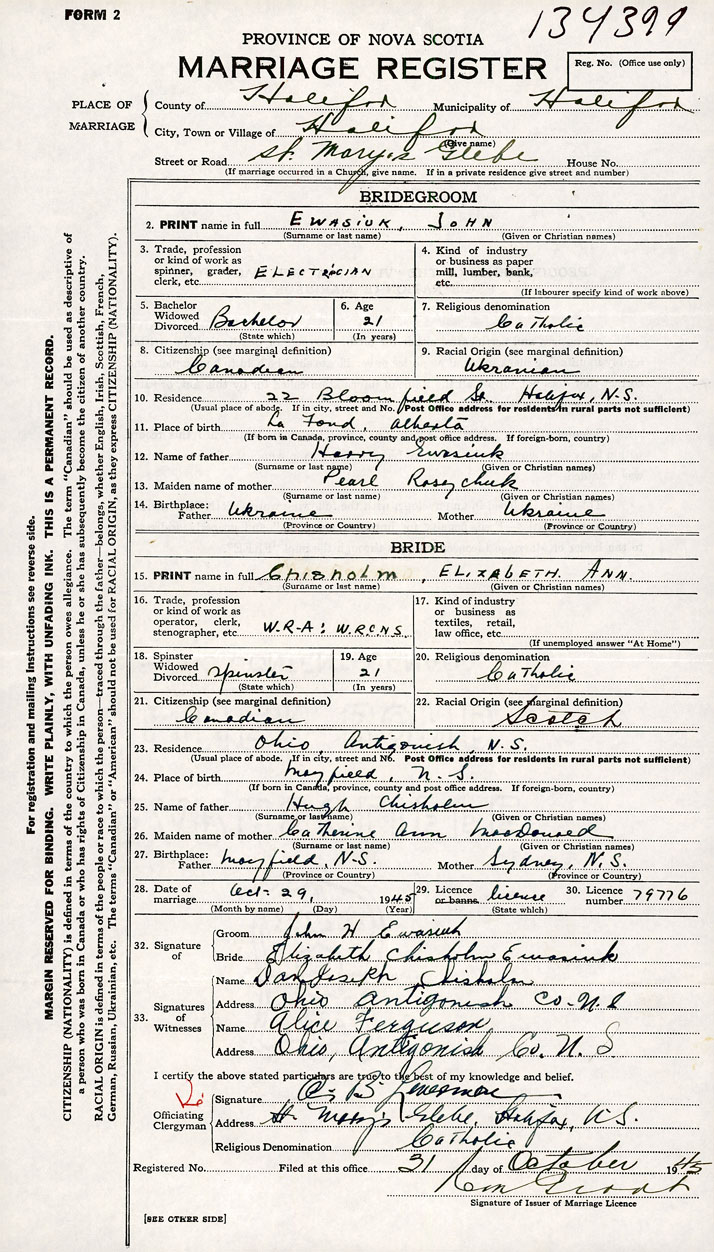 FORM 2
134399
PROVINCE OF NOVA SCOTIA
MARRIAGE REGISTER
Reg. No. (Office use only)
PLACE OF MARRIAGE
County of Halifax Municipality of Halifax
City, Town or Village of Halifax
(Give name)
Street or Road St. Mary's Glebe House No.
(If marriage occurred in a Church, give name. If in a private residence give street and number)
BRIDEGROOM
2. PRINT name in full EWASIUK, JOHN
(Surname or last name) (Given or Christian names)
3. Trade, profession or kind of work as spinner, grader, clerk, etc. ELECTRICIAN
4. Kind of industry or business as paper mill, lumber, bank, etc.
(If labourer specify kind of work above)
5. Bachelor Widowed Divorced Bachelor
(State which)
6. Age 21
(In years)
7. Religious denomination
Catholic
8. Citizenship (see marginal definition)
Canadian
9. Racial Origin (see marginal definition)
Ukranian
10. Residence 22 Bloomfield St. Halifax, N.S.
(Usual place of abode. If in city, street and No. Post Office address for residents in rural parts not sufficient)
11. Place of birth La Fond, Alberta
(If born in Canada, province, county and post office address. If foreign-born, country)
12. Name of father Harry Ewasiuk
(Surname or last name) (Given or Christian names)
13. Maiden name of mother Pearl Rosychuk
(Surname or last name) (Given or Christian names)
14. Birthplace: Father Ukraine Mother Ukraine
(Province or Country) (Province or Country)
BRIDE
15. PRINT name in full Chisholm, ELIZABETH ANN.
(Surname or last name) (Given or Christian names)
16. Trade, profession or kind of work as operator, clerk, stenographer, etc W.R-A: W.R.C.N.S.
17. Kind of industry or business as textiles, retail, law office, etc.
(If unemployed answer "At Home")
18. Spinster Widowed Divorced spinster
(State which)
19. Age 21
(In years)
20. Religious denomination
Catholic
21. Citizenship (see marginal definition)
Canadian
22. Racial Origin (see marginal definition)
Scotch
23. Residence Ohio, Antigonish, N.S.
(Usual place of abode. If in city, street and No. Post Office address for residents in rural parts not sufficient)
24. Place of birth Mayfield, N.S.
(If born in Canada, province, county and post office address. If foreign-born, country)
25. Name of father Hugh Chisholm
(Surname or last name) (Given or Christian names)
26. Maiden name of mother Catherine Ann MacDonald
(Surname or last name) (Given or Christian names)
27. Birthplace: Father Mayfield, N.S. Mother Sydney, N.S.
(Province or Country) (Province or Country)
28. Date of marriage Oct. 29, 1945
(Month by name) (Day) (Year)
29. Licence or banns license
(State which)
30. Licence number 79776
32. Signature of
Groom John H Ewasiuk
Bride Elizabeth Chisholm Ewasiuk
33. Signatures of Witnesses
Name Dan Joseph Chisholm
Address Ohio Antigonish Co. N.S
Name Alice Ferguson,
Address Ohio, Antigonish Co. N. S
I certify the above stated particulars are true to the best of my knowledge and belief.
Officiating Clergyman
Signature
Address St. Mary's Glebe, Halifax, N.S.
Religious Denomination Catholic
Registered No. Filed at this office 31 day of October 1945
Signature of Issuer of Marriage Licence
[SEE OTHER SIDE]
For registration and mailing instructions see reverse side.
MARGIN RESERVED FOR BINDING. WRITE PLAINLY, WITH UNFADING INK. THIS IS A PERMANENT RECORD.
CITIZENSHIP (NATIONALITY) is defined in terms of the country to which the person owes allegiance. The term "Canadian" should be used as descriptive of
a person who was born in Canada or who has rights of Citizenship in Canada, unless he or she has subsequently become the citizen of another country.
RACIAL ORIGIN is defined in terms of the people or race to which the person—traced through the father—belongs, whether English, Irish, Scottish, French,
German, Russian, Ukrainian, etc. The terms "Canadian" or "American" should not be used for RACIAL ORIGIN, as they express CITIZENSHIP (NATIONALITY).